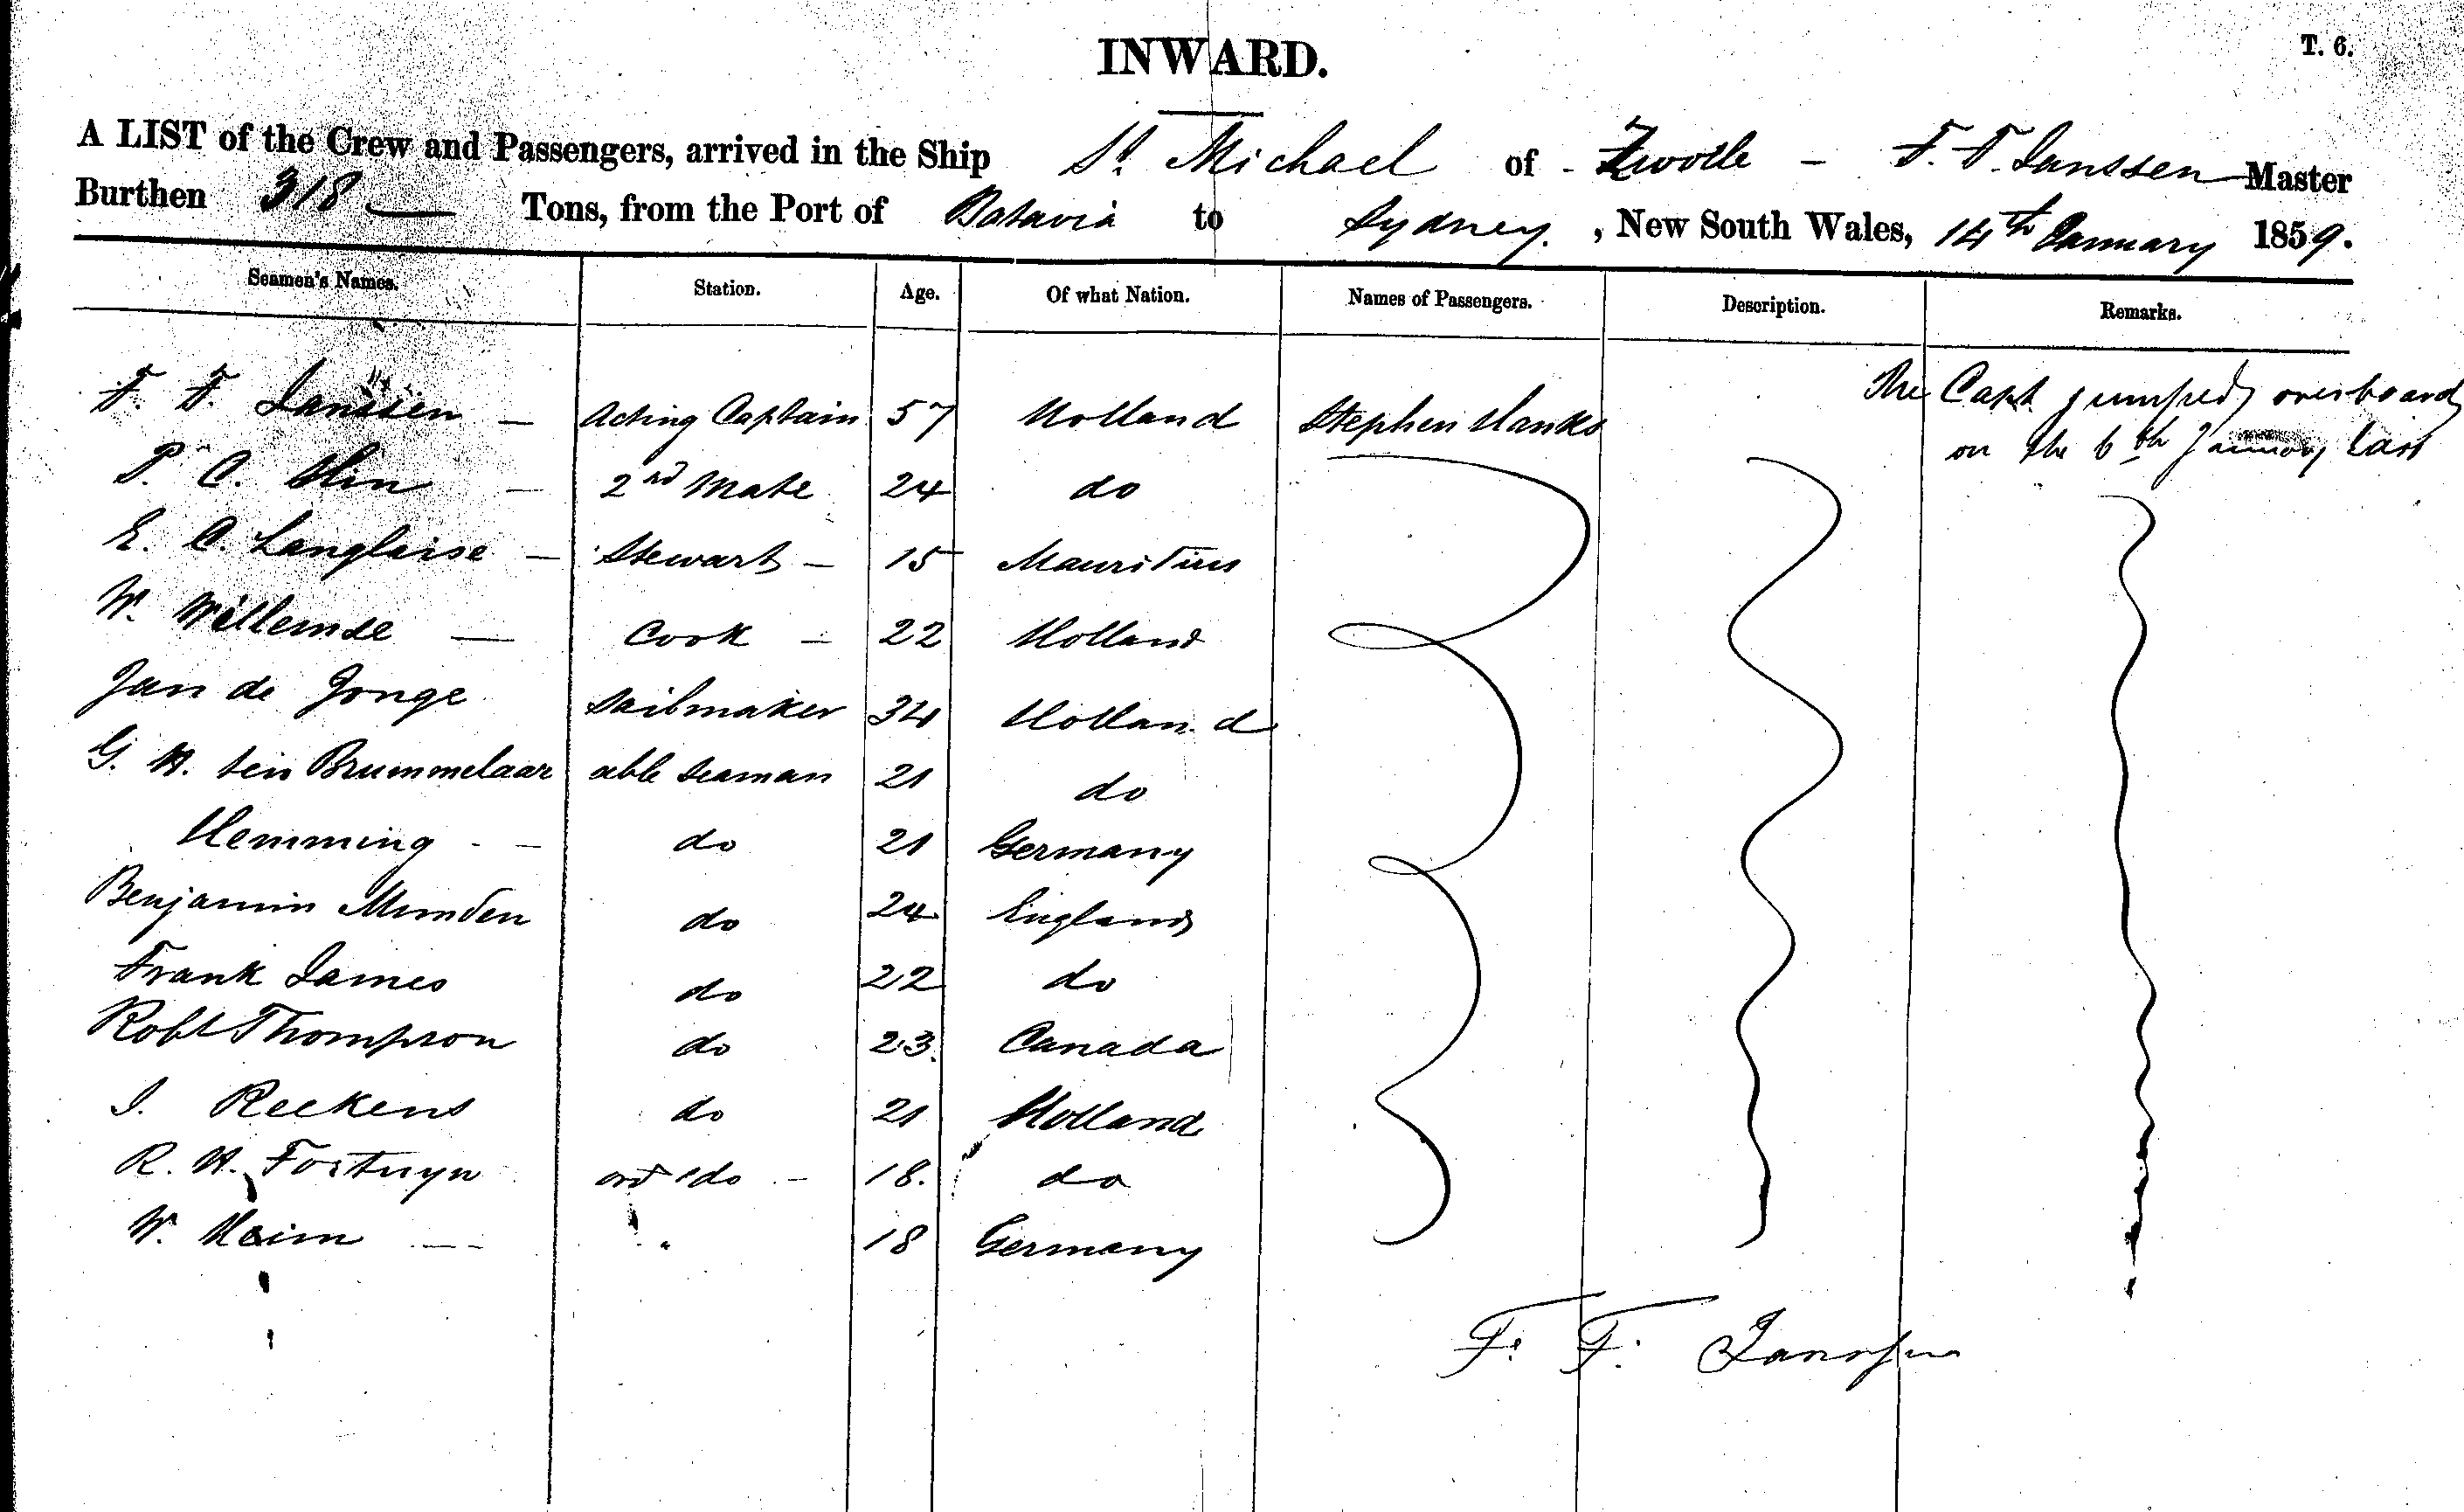 INWARD.
T. 6.
A LIST of the Crew and Passengers, arrived in the Ship St Michael of Zwolle - F. F. Janssen Master
Burthen 318 Tons, from the Port of Batavia to Sydney. , New South Wales, 14th January 1859.
Seamen's Names. Station. Age. Of what Nation. Names of Passengers. Description. Remarks.
F. F. Janssen — Acting Captain 57 Holland Stephen Hanks The Capt jumped overboard
on the 6th January last
P. C. — 2nd Mate 24 do
E. C. Langlaise — Stewart — 15 Mauritius
W. Willemse — Cook — 22 Holland
Jan de Jonge Sailmaker 34 Holland
G. H. ten Brummelaar able seaman 21 do
Hemming - — do 21 Germany
Benjamin Munden do 24 England
Frank James do 22 do
Robt Thompson do 23. Canada
J. Reekens do 21 Holland
R. H. Fortuyn ord do — 18. do
W. Heim — " 18 Germany
F. F. Janssen